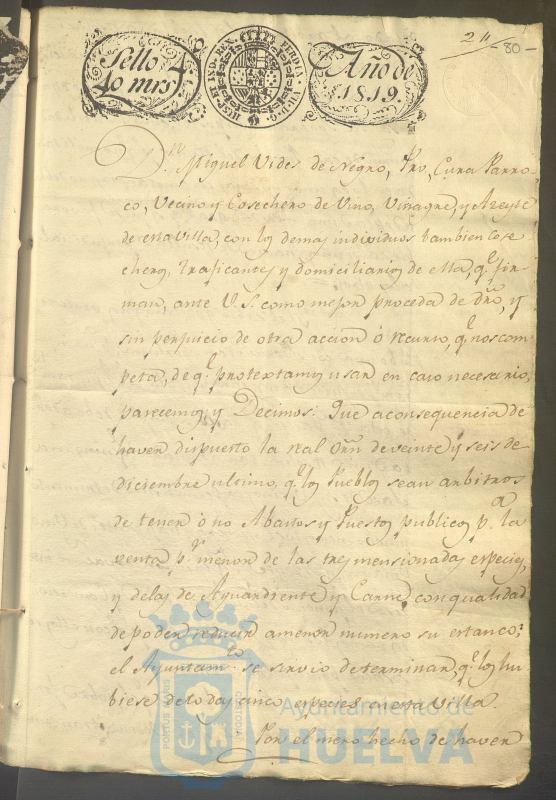 24
-80-
Sello 4º
40 mrs.
HISP. ET IND. REX. FERD. VII. D. G.
Año de
1819.
Dn. Miguel Vides de Negro, Pro, Cura Parro
co, Vecino y Cosechero de Vino, Vinagre, y Azeyte
de esta Villa, con los demas individuos tambien Cose
cheros, Traficantes y domiciliarios de ella, qe. fir
man, ante V. S. como mejor proceda de dro, y
sin perjuicio de otra accion ó recurso, qe. nos com
peta, de qe. protextamos usar en caso necesario,
parecemos, y Decimos: Que aconsequencia de
haver dispuesto la real Orn de veinte y seis de
diciembre ultimo, qe. los Pueblos sean arbitros
de tener ó no Abastos y Puestos publicos pa. la
venta pr. menor de las tres mensionadas especies,
y delas de Aguardiente y Carne, con qualidad
de poder reducir amenor numero su estanco;
el Ayuntamto. se sirvio determinar, qe. los hu
biese de todas cinco especies en esta Villa.
Por el mero hecho de haver
PORTUS MARIS
Ayuntamiento de
HUELVA